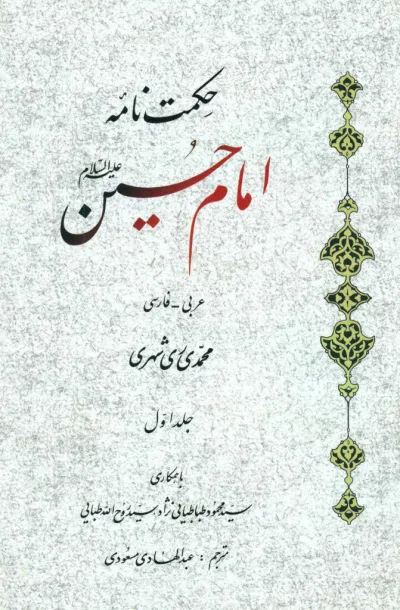 حکمت نامه
امام حسین علیه‌السلام
عربی - فارسی
محمّدی ری شهری
جلد اوّل
با همکاری
سید محمود طباطبایی نژاد، سید روح الله طبایی
مترجم : عبدالهادی مسعودی